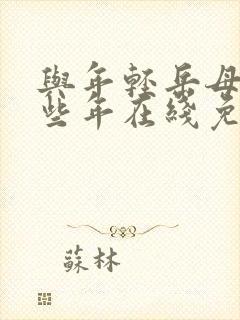 與年輕岳母
些年在綫免
蘇林